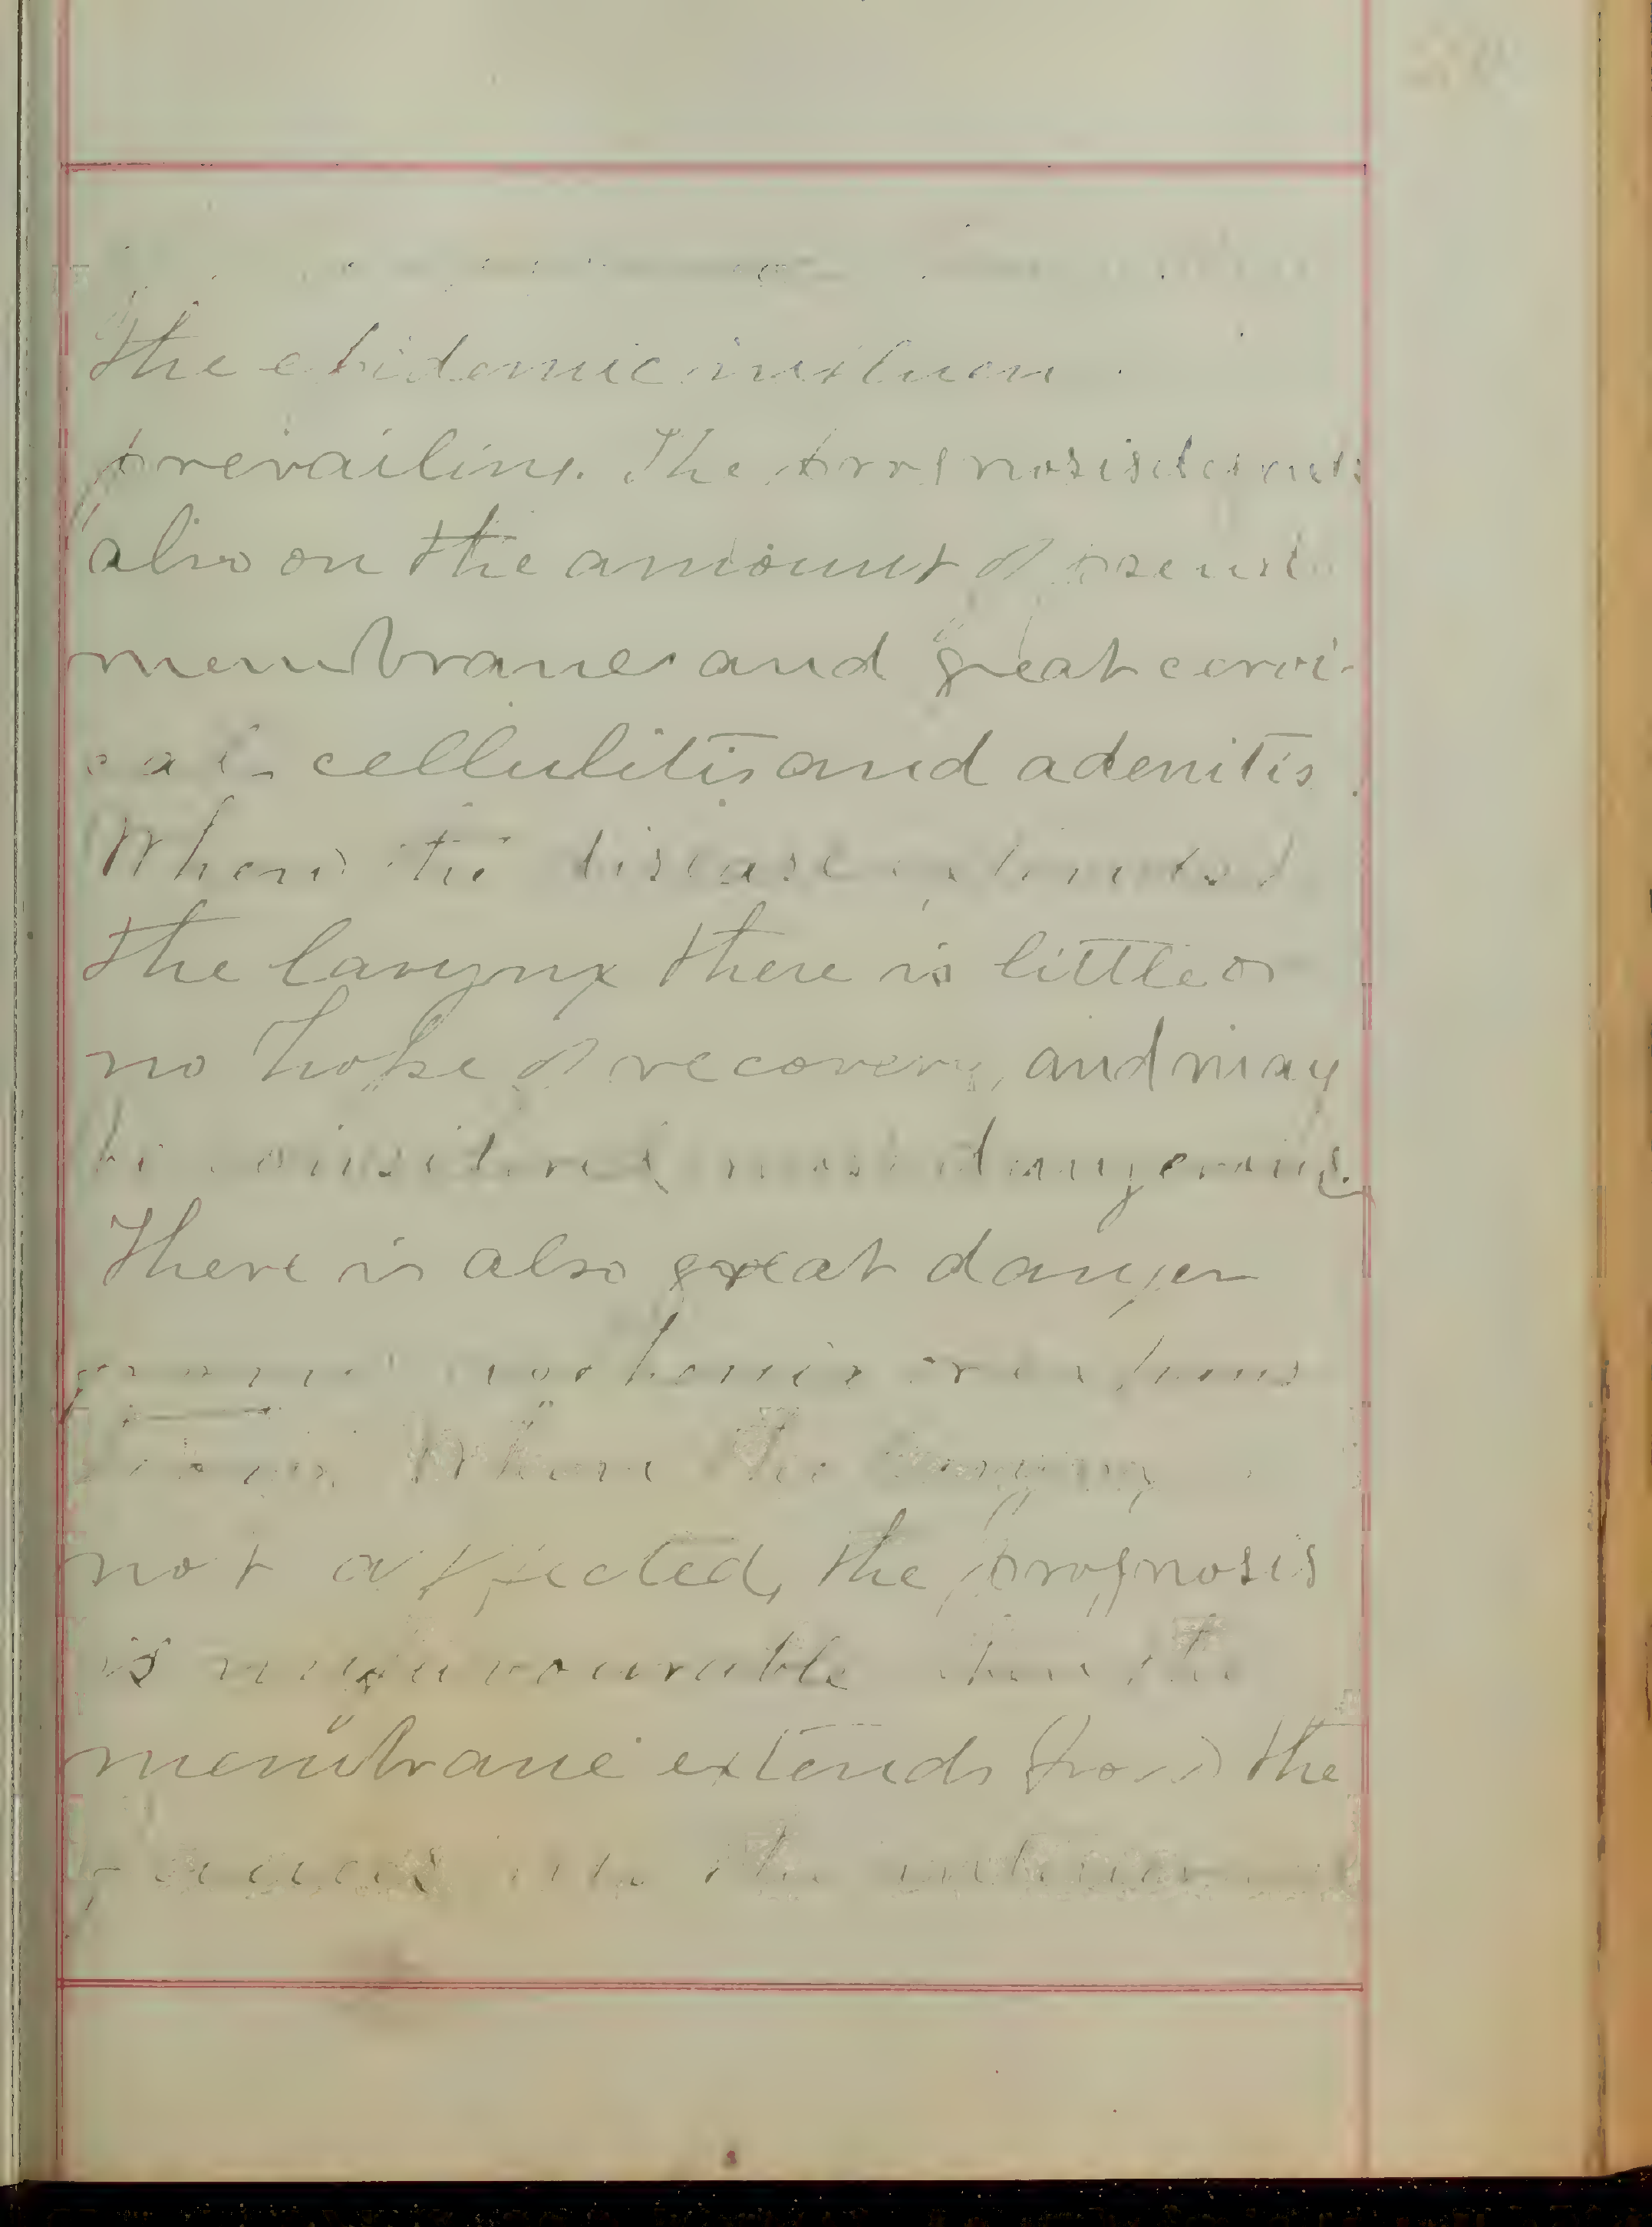 the epidemic influen
prevailing. The prognosis depends
also on the amount of pseudo
membranes and great cervi-
cal cellulitis and adenitis.
When the disease extends
the larynx there is little or
no hope of recovery, and may
be considered most dangerous.
There is also great danger
from
When the larynx
not affected, the prognosis
is unfavourable when the
membrane extends from the
fauces into the